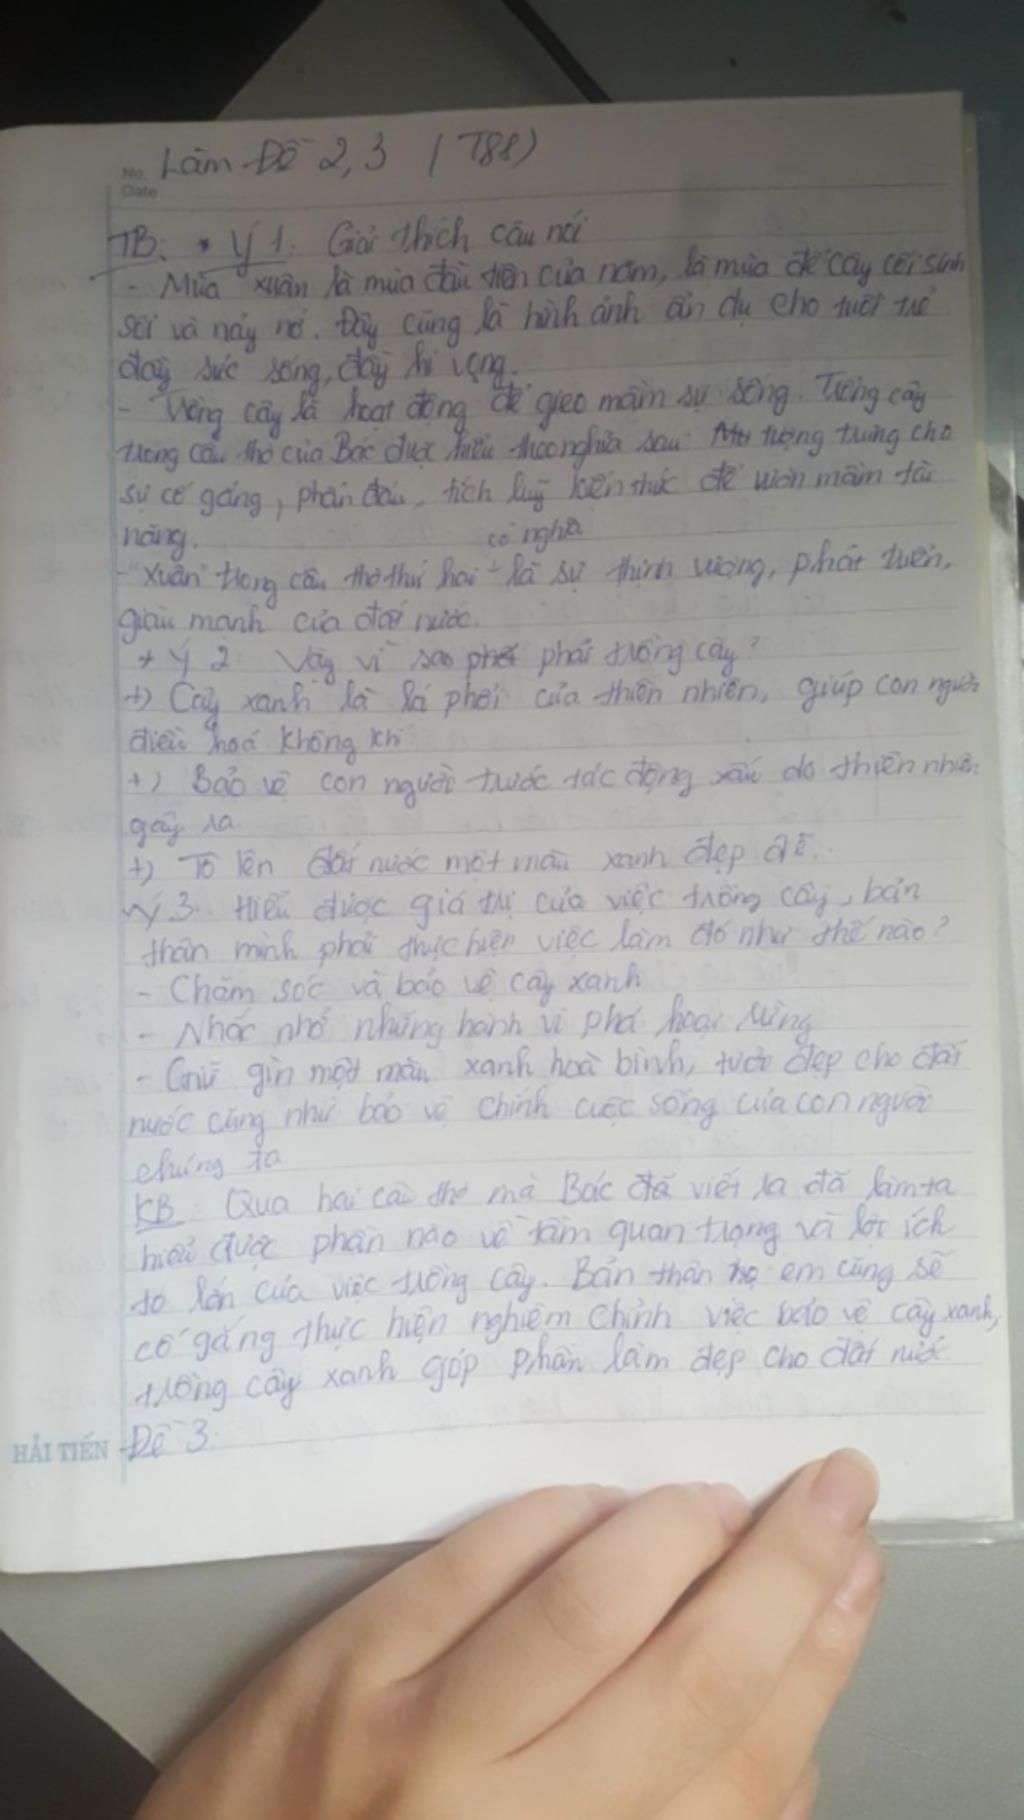 Làm Đề 2, 3 (T88)
No.
Date
TB: * Ý 1: Giải thích câu nói
- Mùa xuân là mùa đầu tiên của năm, là mùa để cây cối sinh
sôi và nảy nở. Đây cũng là hình ảnh ẩn dụ cho tuổi trẻ
đầy sức sống, đầy hi vọng.
- Trồng cây là hoạt động để gieo mầm sự sống. Trồng cây
trong câu thơ của Bác được hiểu theo nghĩa sau: tượng trưng cho
sự cố gắng, phấn đấu, tích luỹ kiến thức để ươm mầm tài
năng.
có nghĩa
- "Xuân" trong câu thơ thứ hai là sự thịnh vượng, phát triển,
giàu mạnh của đất nước.
* Ý 2: Vậy vì sao phải trồng cây?
+) Cây xanh là lá phổi của thiên nhiên, giúp con người
điều hoà không khí
+) Bảo vệ con người trước tác động xấu do thiên nhiên
gây ra
+) Tô lên đất nước một màu xanh đẹp đẽ.
Ý 3: Hiểu được giá trị của việc trồng cây, bản
thân mình phải thực hiện việc làm đó như thế nào?
- Chăm sóc và bảo vệ cây xanh
- Nhắc nhở những hành vi phá hoại rừng
- Giữ gìn một màu xanh hoà bình, tươi đẹp cho đất
nước cũng như bảo vệ chính cuộc sống của con người
chúng ta
KB: Qua hai câu thơ mà Bác đã viết ra đã làm ta
hiểu được phần nào về tầm quan trọng và lợi ích
to lớn của việc trồng cây. Bản thân em cũng sẽ
cố gắng thực hiện nghiêm chỉnh việc bảo vệ cây xanh,
trồng cây xanh góp phần làm đẹp cho đất nước
HẢI TIẾN
Đề 3: